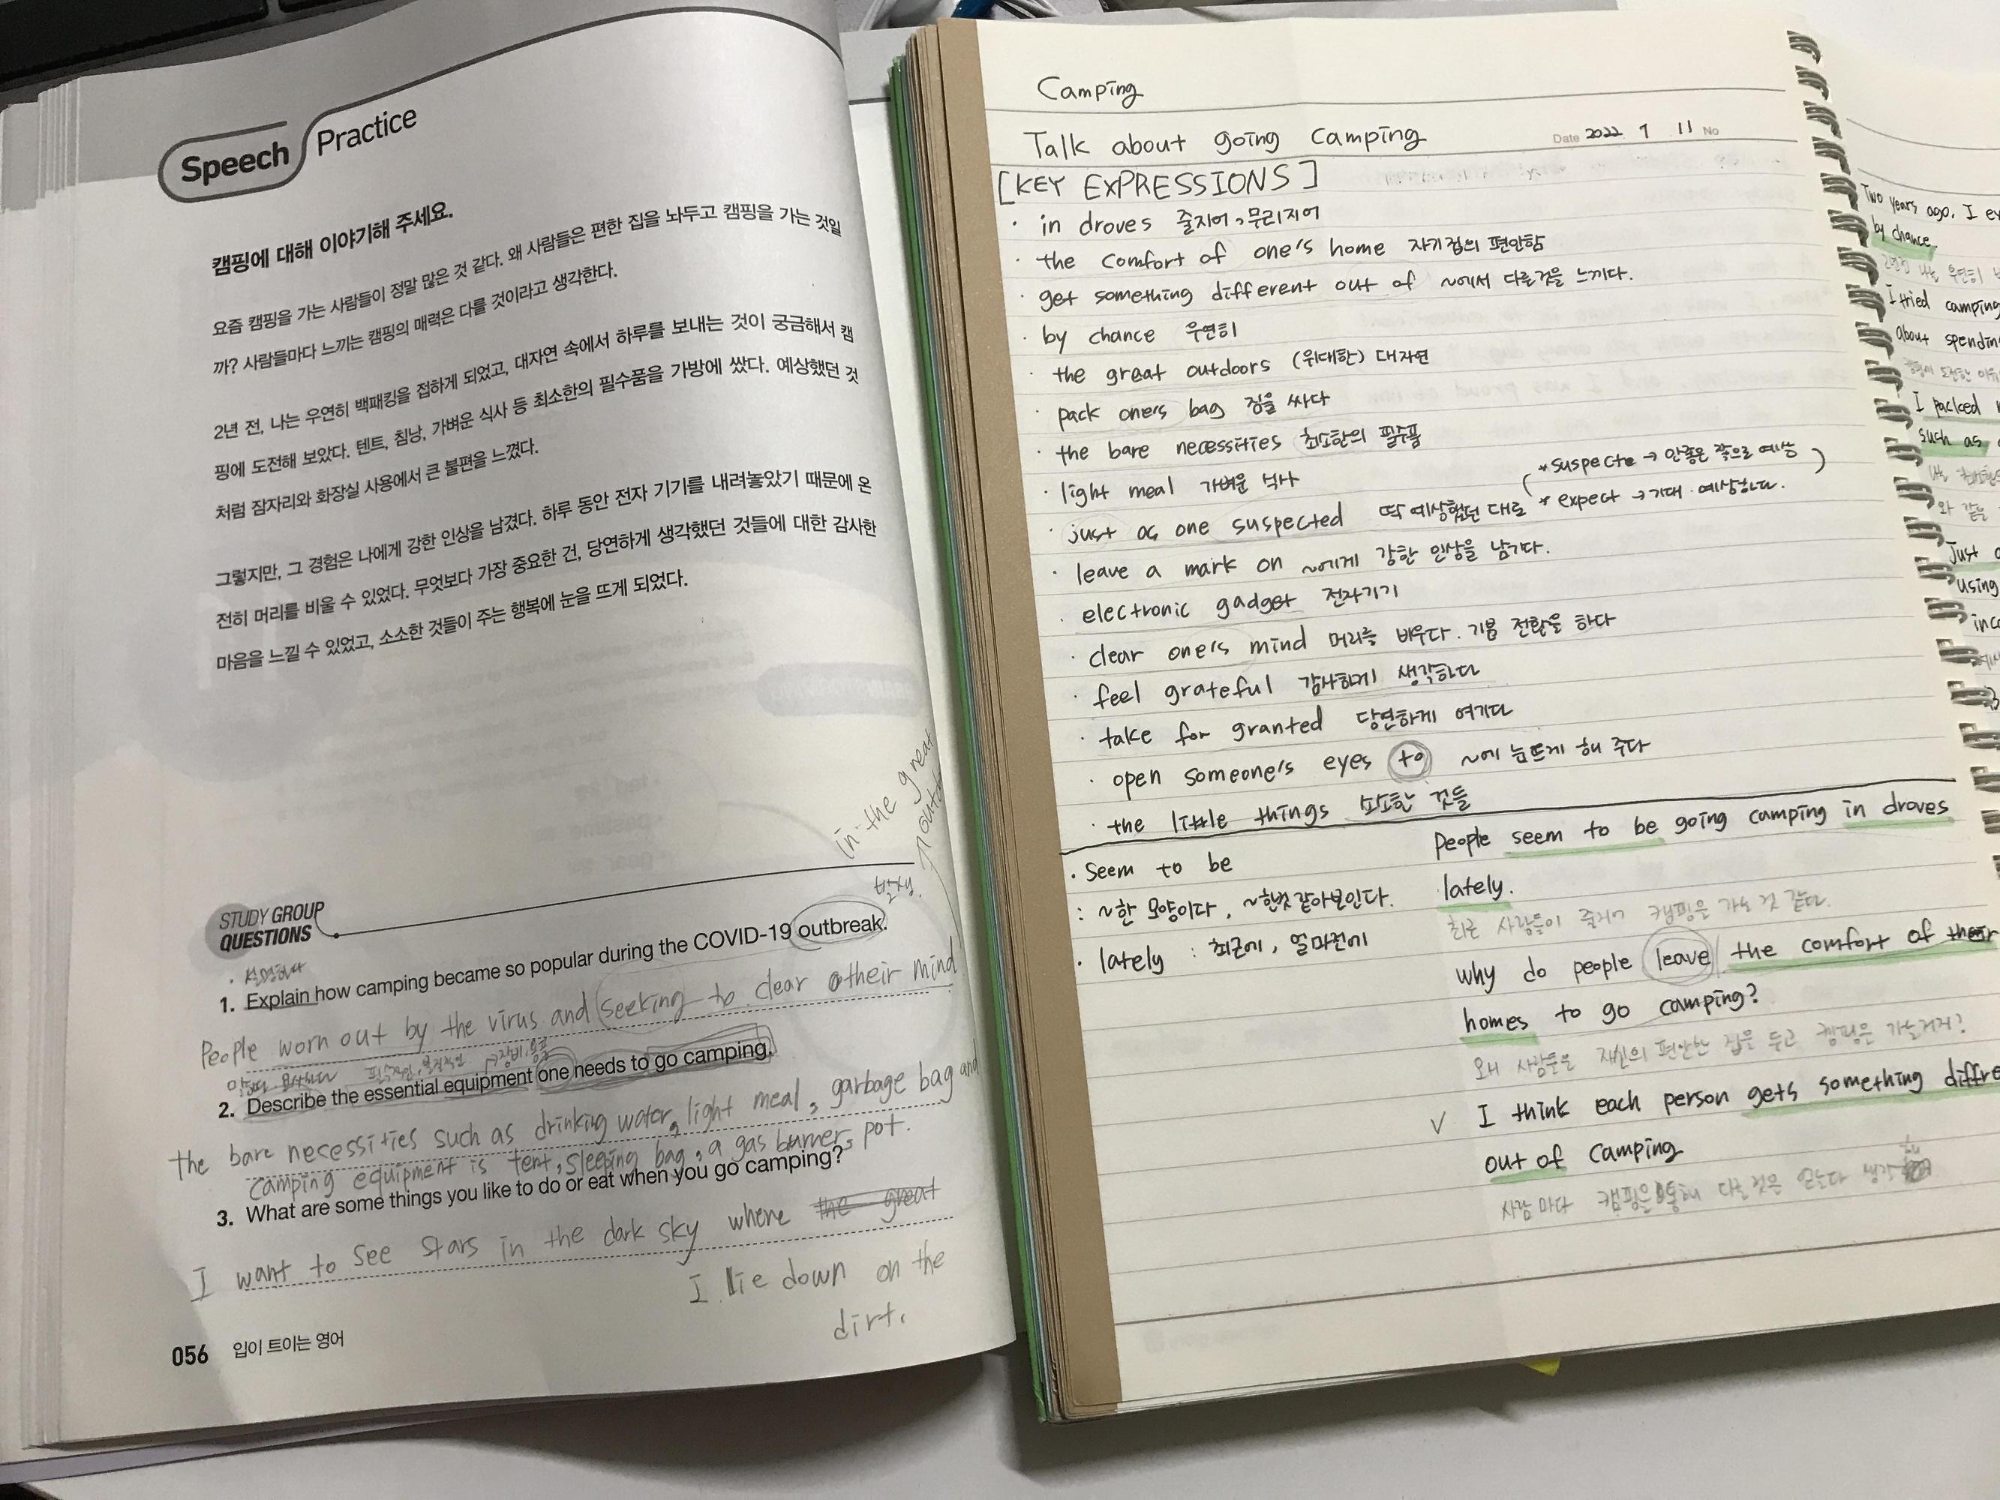 Speech Practice
캠핑에 대해 이야기해 주세요.
요즘 캠핑을 가는 사람들이 정말 많은 것 같다. 왜 사람들은 편한 집을 놔두고 캠핑을 가는 것일
까? 사람들마다 느끼는 캠핑의 매력은 다를 것이라고 생각한다.
2년 전, 나는 우연히 백패킹을 접하게 되었고, 대자연 속에서 하루를 보내는 것이 궁금해서 캠
핑에 도전해 보았다. 텐트, 침낭, 가벼운 식사 등 최소한의 필수품을 가방에 쌌다. 예상했던 것
처럼 잠자리와 화장실 사용에서 큰 불편을 느꼈다.
그렇지만, 그 경험은 나에게 강한 인상을 남겼다. 하루 동안 전자 기기를 내려놓았기 때문에 온
전히 머리를 비울 수 있었다. 무엇보다 가장 중요한 건, 당연하게 생각했던 것들에 대한 감사한
마음을 느낄 수 있었고, 소소한 것들이 주는 행복에 눈을 뜨게 되었다.
in the great
STUDY GROUP
QUESTIONS
발생.
설명하다
1. Explain how camping became so popular during the COVID-19 outbreak.
People worn out by the virus and seeking to clear their mind
장비, 용품
2. Describe the essential equipment one needs to go camping.
the bare necessities such as drinking water, light meal, garbage bag and
camping equipment is tent, sleeping bag, a gas burner, pot.
3. What are some things you like to do or eat when you go camping?
I want to see stars in the dark sky where the great
I lie down on the
dirt.
056 입이 트이는 영어
Camping
Talk about going camping Date 2022 7 11 No
[KEY EXPRESSIONS]
· in droves 줄지어, 무리지어
· the comfort of one's home 자기집의 편안함
· get something different out of ~에서 다른것을 느끼다.
· by chance 우연히
· the great outdoors (위대한) 대자연
· pack one's bag 짐을 싸다
· the bare necessities 최소한의 필수품
· light meal 가벼운 식사
* suspecte → 안좋은 쪽으로 예상
· just as one suspected 딱 예상했던 대로 * expect → 기대. 예상하다.
· leave a mark on ~에게 강한 인상을 남기다.
· electronic gadget 전자기기
· clear one's mind 머리를 비우다. 기분 전환을 하다
· feel grateful 감사하게 생각하다
· take for granted 당연하게 여기다
· open someone's eyes to ~에 눈뜨게 해 주다
· the little things 소소한 것들
· seem to be
: ~한 모양이다, ~한것 같아보인다.
· lately : 최근에, 얼마전에
People seem to be going camping in droves
lately.
최근 사람들이 줄지어 캠핑을 가는 것 같다.
why do people leave the comfort of their
homes to go camping?
왜 사람들은 자신의 편안한 집을 두고 캠핑을 가는거지?
✓ I think each person gets something diffre
out of camping
사람마다 캠핑을 통해 다른것을 얻는다 생각
Two years ago, I
by chance.
I tried camping
about spending
I packed
such as
Just
using